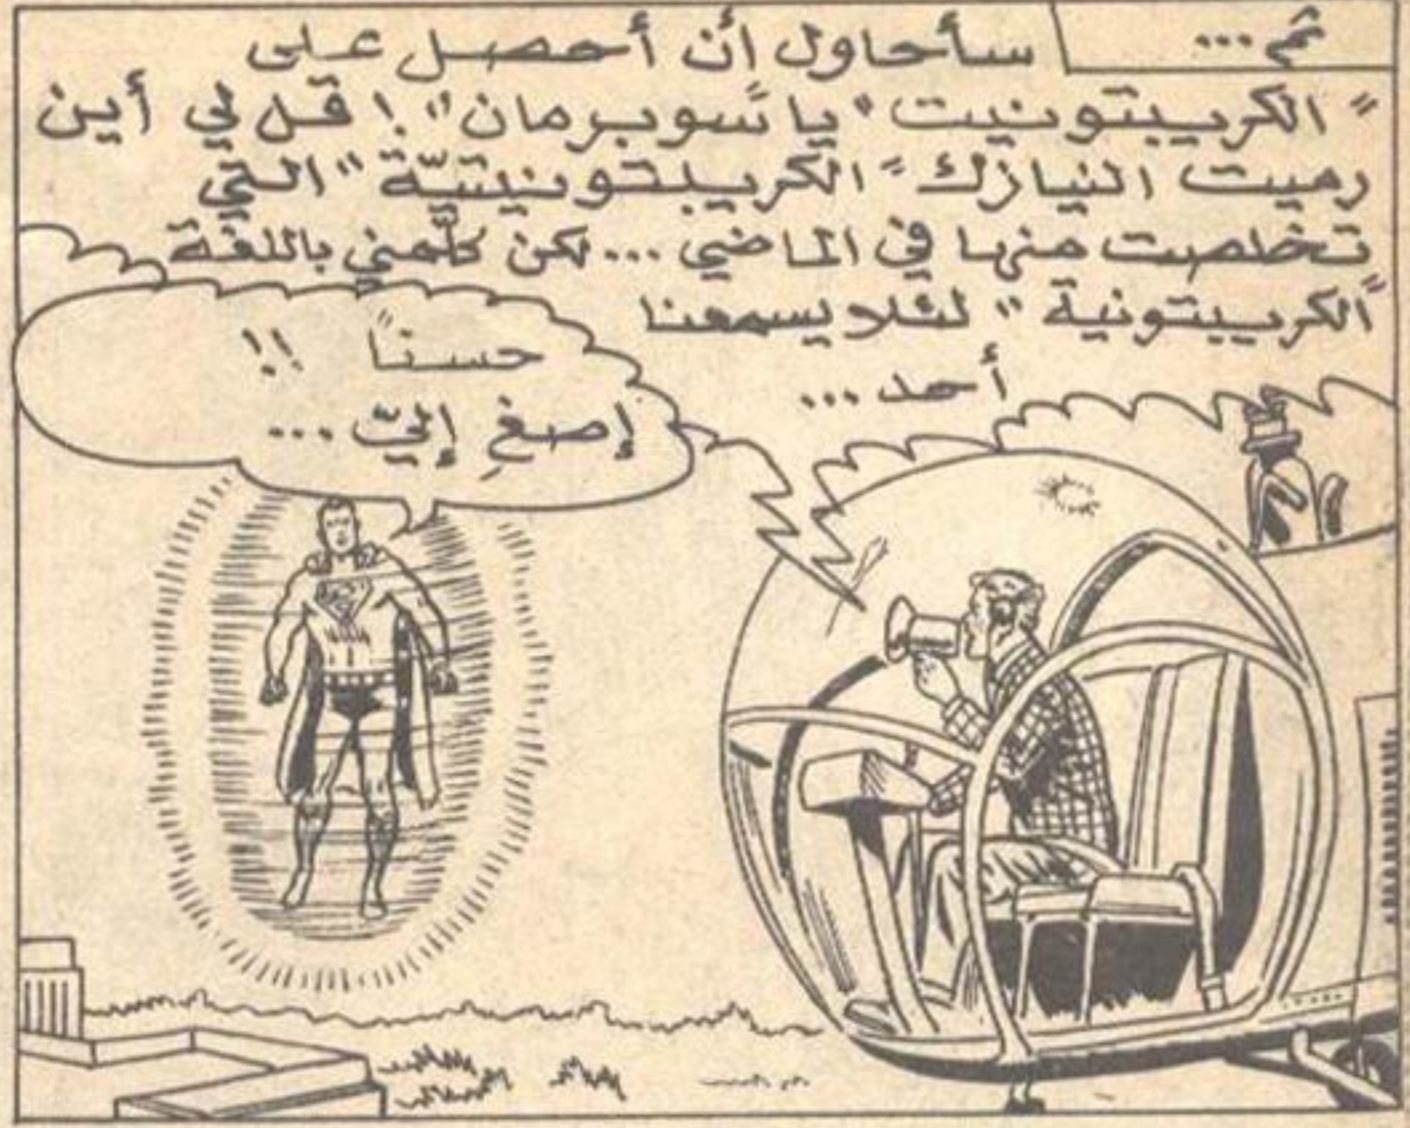 ثم...
سأحاول أن أحصل على
"الكريبتونيت" يا سوبرمان"! قل لي أين
رميت النيازك "الكريبتونيتيّة" التي
تخلصت منها في الماضي... لكن كلّمني باللغة
"الكريبتونية" لئلا يسمعنا
أحد...
حسناً !!
إصغِ إليّ...